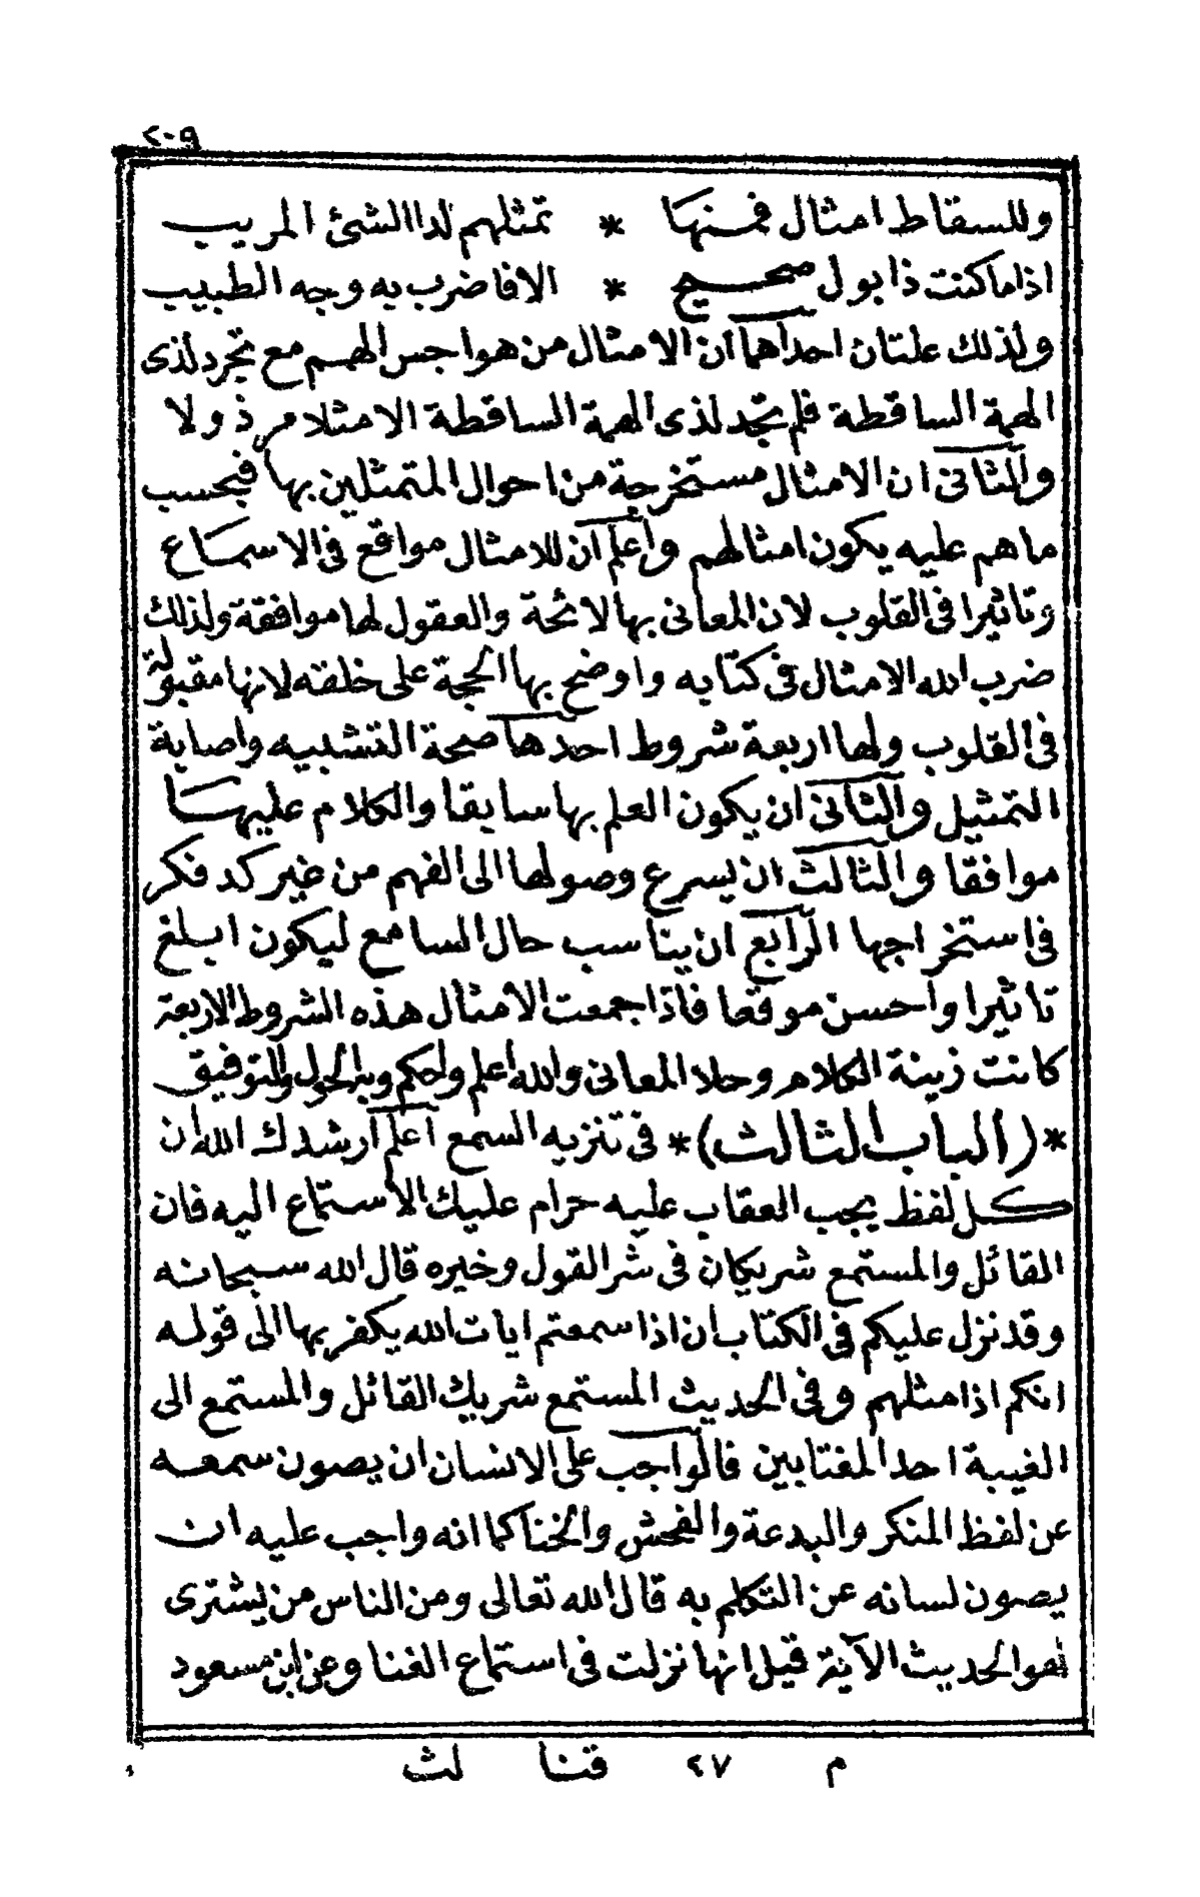 ٢٠٩
وللسقاط امثال فمنها * تمثلهم لدا الشئ المريب
اذا ماكنت ذا بول صحيح * الا فاضرب به وجه الطبيب
ولذلك علتان احداهما ان الامثال من هواجس الهمم مع تجرد لذى
الهمة الساقطة فلم تجد لذى الهمة الساقطة الا مثلا مرذولا
والثانى ان الامثال مستخرجة من احوال المتمثلين بها فبحسب
ما هم عليه يكون امثالهم واعلم ان للامثال مواقع فى الاسماع
وتاثيرا فى القلوب لان المعانى بها لائحة والعقول لها موافقة ولذلك
ضرب الله الامثال فى كتابه واوضح بها الحجة على خلقه لانها مقبولة
فى القلوب ولها اربعة شروط احدها صحة التشبيه واصابة
التمثيل والثانى ان يكون العلم بها سابقا والكلام عليها
موافقا والثالث ان يسرع وصولها الى الفهم من غير كد فكر
فى استخراجها الرابع ان يناسب حال السامع ليكون ابلغ
تاثيرا واحسن موقعا فاذا جمعت الامثال هذه الشروط الاربعة
كانت زينة الكلام وحلا المعانى والله اعلم واحكم وبه الحول والتوفيق
*(الباب الثالث)* فى تنزيه السمع اعلم ارشدك الله ان
كل لفظ يجب العقاب عليه حرام عليك الاستماع اليه فان
القائل والمستمع شريكان فى شر القول وخيره قال الله سبحانه
وقد نزل عليكم فى الكتاب ان اذا سمعتم ايات الله يكفر بها الى قوله
انكم اذا مثلهم وفى الحديث المستمع شريك القائل والمستمع الى
الغيبة احد المغتابين فالواجب على الانسان ان يصون سمعه
عن لفظ المنكر والبدعة والفحش والخنا كما انه واجب عليه ان
يصون لسانه عن التكلم به قال الله تعالى ومن الناس من يشترى
لهو الحديث الآية قيل انها نزلت فى استماع الغنا وعن ابن مسعود
م ٢٧ قنا لث